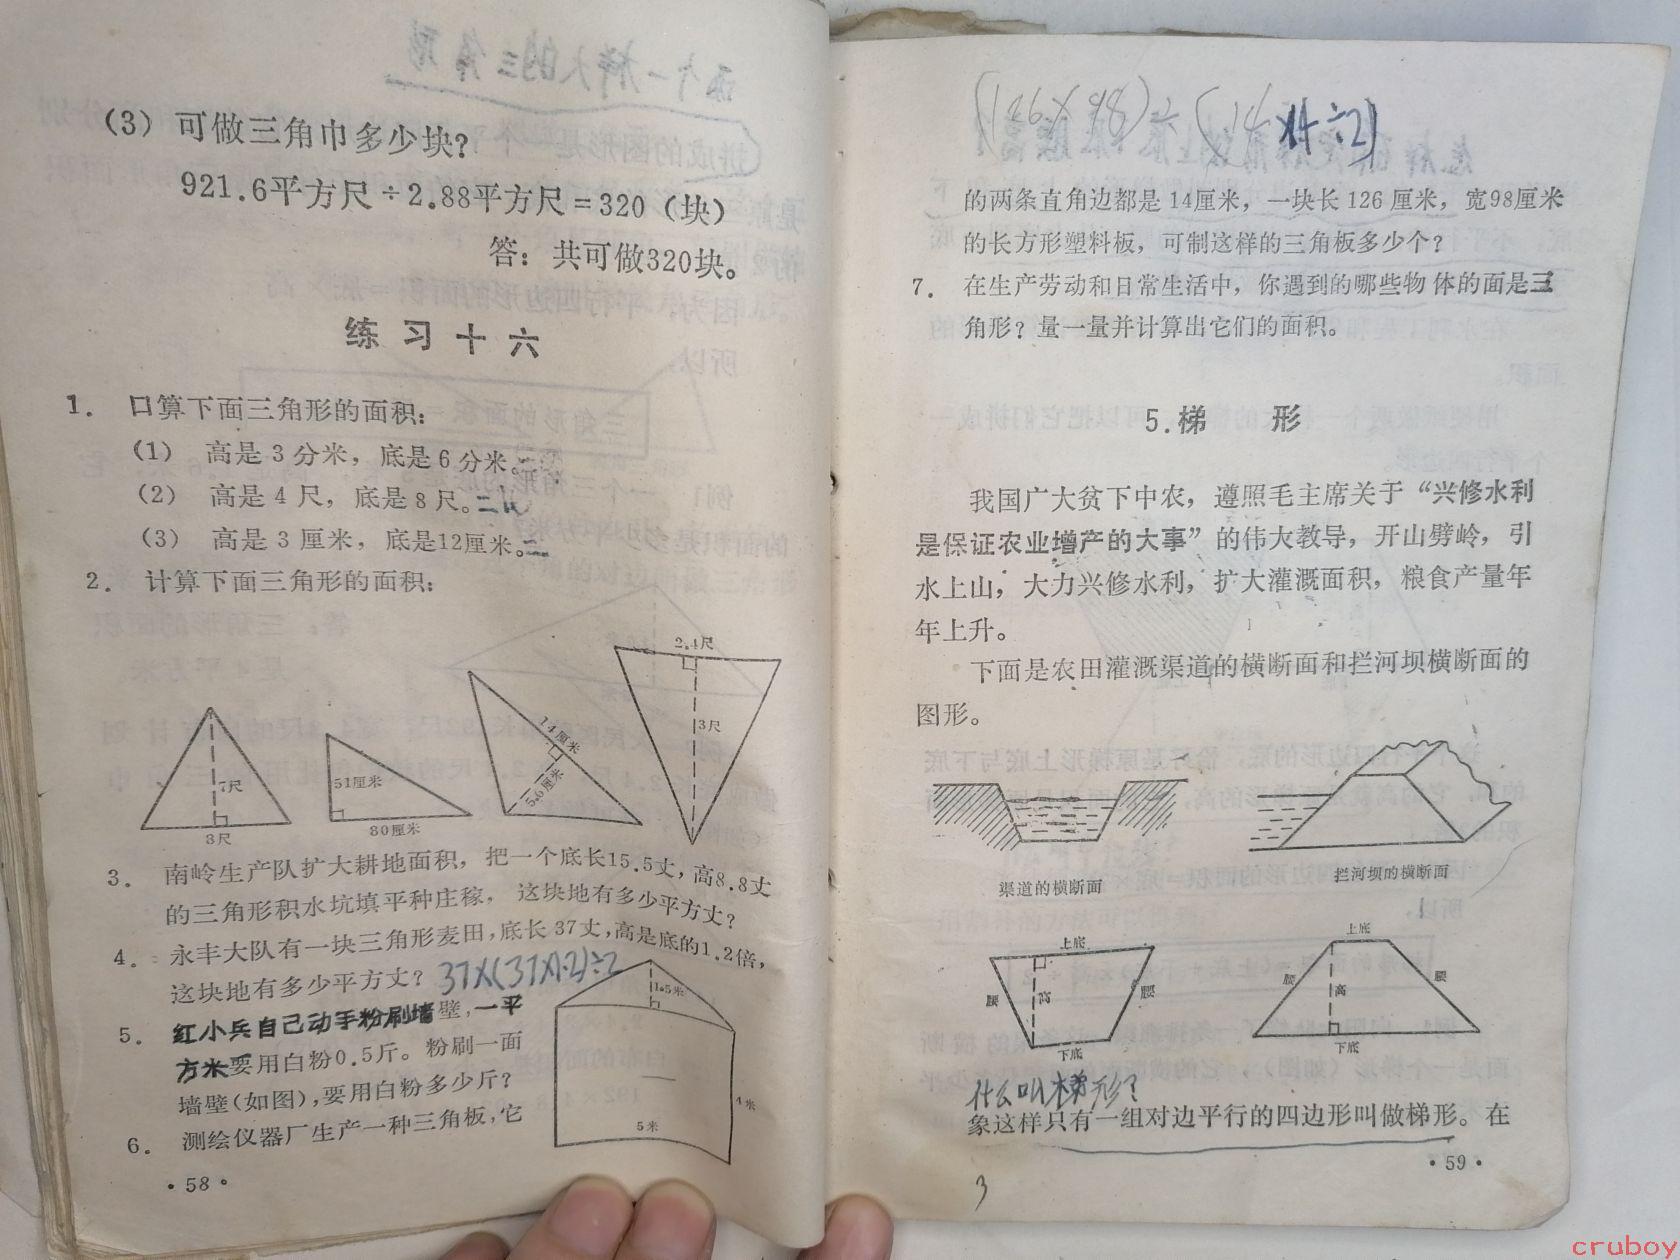 (3) 可做三角巾多少块?
921.6平方尺÷2.88平方尺=320(块)
答: 共可做320块。
练习十六
1. 口算下面三角形的面积:
(1) 高是3分米, 底是6分米。
(2) 高是4尺, 底是8尺。
(3) 高是3厘米, 底是12厘米。
2. 计算下面三角形的面积:
7尺
3尺
51厘米
80厘米
14厘米
5.6厘米
2.4尺
3尺
3. 南岭生产队扩大耕地面积, 把一个底长15.5丈, 高8.8丈
的三角形积水坑填平种庄稼, 这块地有多少平方丈?
4. 永丰大队有一块三角形麦田, 底长37丈, 高是底的1.2倍,
这块地有多少平方丈? 37×(37×1.2)÷2
5. 红小兵自己动手粉刷墙壁, 一平
方米要用白粉0.5斤。粉刷一面
墙壁(如图), 要用白粉多少斤?
1.5米
4米
5米
6. 测绘仪器厂生产一种三角板, 它
·58·
(126×98)÷(14×14÷2)
的两条直角边都是14厘米, 一块长126厘米, 宽98厘米
的长方形塑料板, 可制这样的三角板多少个?
7. 在生产劳动和日常生活中, 你遇到的哪些物体的面是三
角形? 量一量并计算出它们的面积。
5. 梯形
我国广大贫下中农, 遵照毛主席关于“兴修水利
是保证农业增产的大事”的伟大教导, 开山劈岭, 引
水上山, 大力兴修水利, 扩大灌溉面积, 粮食产量年
年上升。
下面是农田灌溉渠道的横断面和拦河坝横断面的
图形。
渠道的横断面
拦河坝的横断面
上底
腰
高
腰
下底
上底
腰
高
腰
下底
什么叫梯形?
象这样只有一组对边平行的四边形叫做梯形。在
·59·
3
cruboy